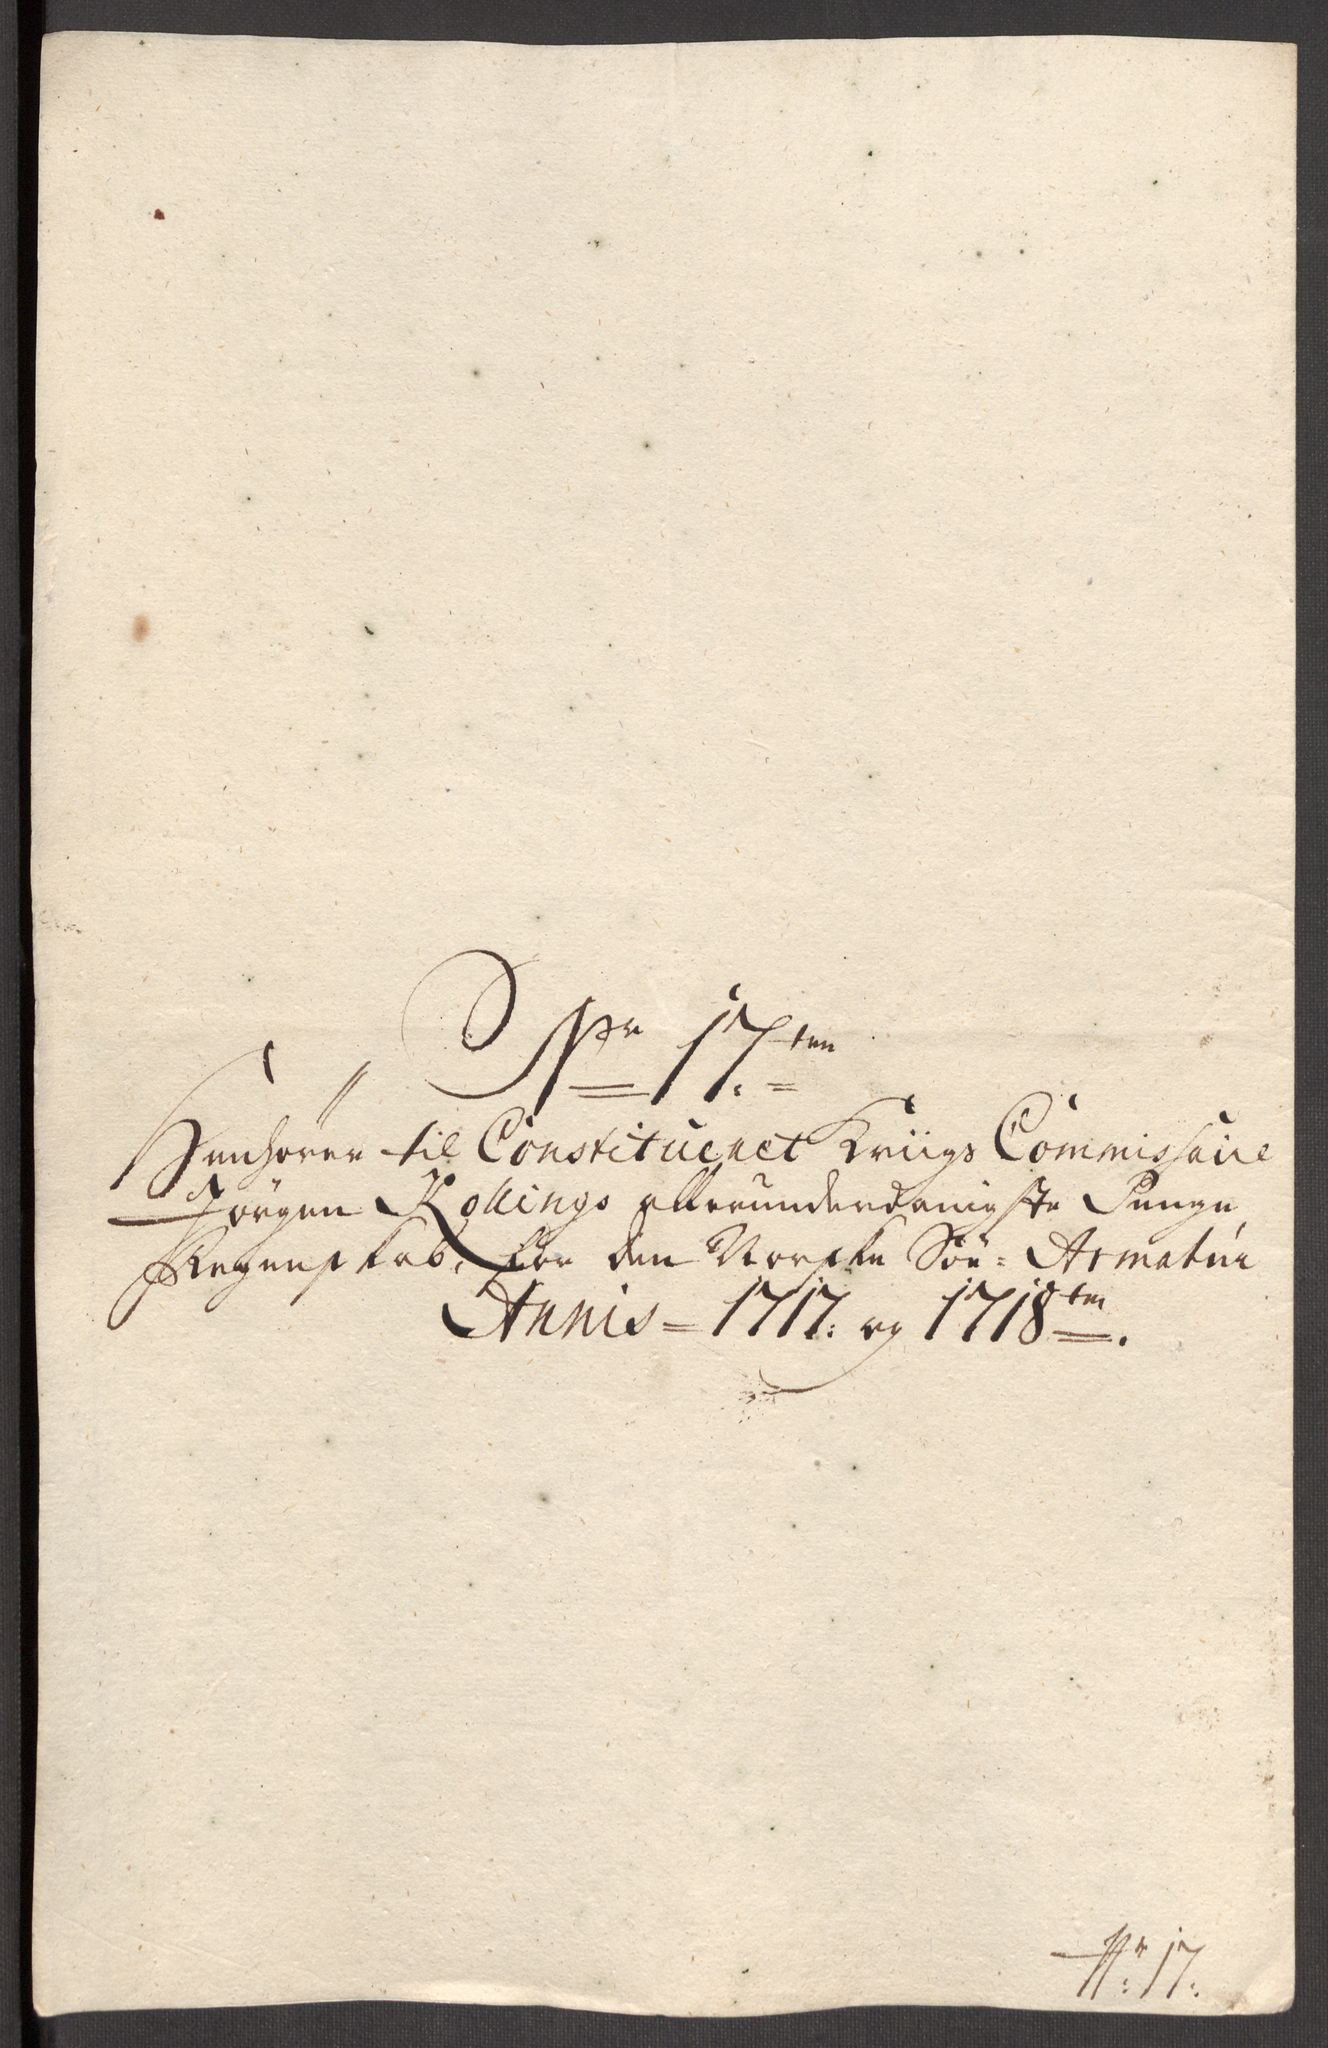 Nr 17.ten
Henhører til Constitueret Kriigs Commissaire
Jørgen Kollings allerunderdanigste Penge
Regenskab, for den Norske Søe = Armatur
Annis = 1717. og 1718ten.
Nr. 17.